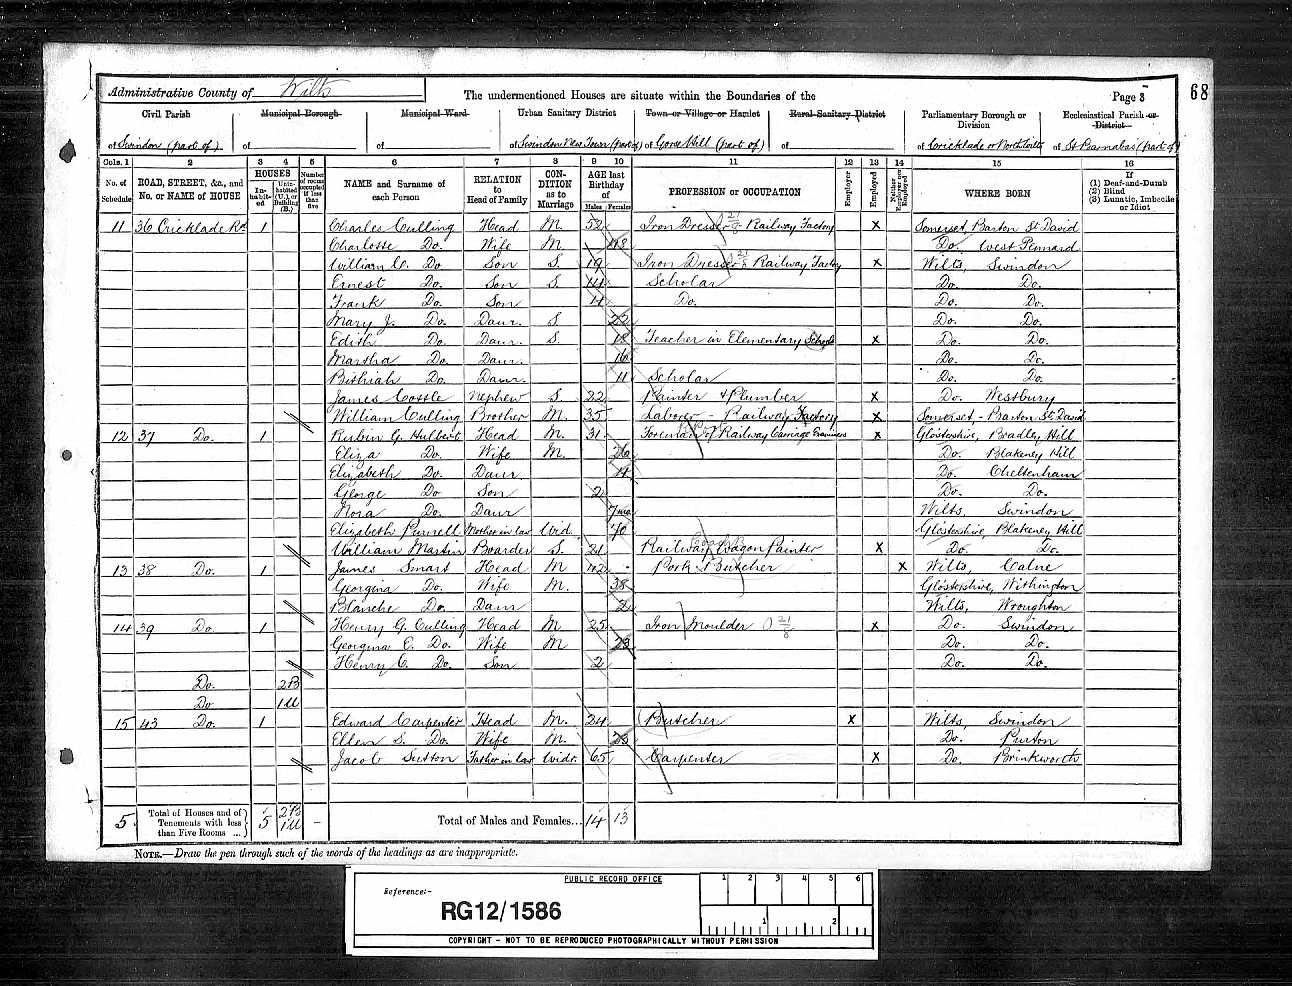 Administrative County of Wilts The undermentioned Houses are situate within the Boundaries of the Page 8 68
Civil Parish Municipal Borough Municipal Ward Urban Sanitary District Town or Village or Hamlet Rural Sanitary District Parliamentary Borough or Division Ecclesiastical Parish or District
of Swindon (part of) of of of Swindon New Town (part of) of Gorse Hill (part of) of of Cricklade or North Wilts of St Barnabas (part of)
Cols. 1 2 3 4 5 6 7 8 9 10 11 12 13 14 15 16
No. of Schedule ROAD, STREET, &c., and No. or NAME of HOUSE HOUSES In-habit-ed Unin-habited (U.), or Building (B.) Number of rooms occupied if less than five NAME and Surname of each Person RELATION to Head of Family CON-DITION as to Marriage AGE last Birthday of Males Females PROFESSION or OCCUPATION Employer Employed Neither Employer nor Employed WHERE BORN If (1) Deaf-and-Dumb (2) Blind (3) Lunatic, Imbecile or Idiot
11 36 Cricklade Rd 1 Charles Culling Head M. 52 Iron Dresser 21/8 Railway Factory X Somerset, Barton St David
Charlotte Do. Wife M. 48 Do. West Pennard
William C. Do Son S. 19 Iron Dresser 21/8 Railway Factory X Wilts, Swindon
Ernest Do. Son S. 14 Scholar Do. Do.
Frank Do. Son 4 Do. Do. Do.
Mary J. Do. Daur. S. 22 Do. Do.
Edith Do. Daur. S. 18 Teacher in Elementary Schools X Do. Do.
Martha Do. Daur. 16 Do. Do.
Bithiah Do. Daur. 11 Scholar Do. Do.
James Cottle Nephew S. 22 Painter & Plumber X Do. Westbury
William Culling Brother M. 35 Laborer - Railway Factory X Somerset - Barton St David
12 37 Do. 1 Rubin G. Hulbert Head M. 31 Foreman of Railway Carriage Examiners X Glostershire, Bradley Hill
Eliza Do. Wife M. 26 Do. Blakeney Hill
Elizabeth Do. Daur 4 Do. Cheltenham
George Do Son 2 Do. Do.
Nora Do. Daur 7 mo Wilts. Swindon
Elizabeth Purnell Mother in law Wid. 70 Glostershire, Blakeney Hill
William Martin Boarder S. 21 Railway Wagon Painter X Do. Do.
13 38 Do. 1 James Smart Head M 42 Pork Butcher X Wilts, Calne
Georgina Do. Wife M. 38 Glostershire, Withington
Blanche Do. Daur 2 Wilts, Wroughton
14 39 Do 1 Henry G. Culling Head M 25 Iron Moulder 21/8 X Do. Swindon
Georgina E. Do. Wife M 23 Do. Do.
Henry C. Do. Son 2 Do. Do.
Do. 2B
Do 1U
15 43 Do. 1 Edward Carpenter Head M. 24 Butcher X Wilts, Swindon
Ellen S. Do. Wife M. 23 Do. Purton
Jacob Sutton Father in law Widr. 65 Carpenter X Do. Brinkworth
5 Total of Houses and of Tenements with less than Five Rooms ... 5 2B 1U - Total of Males and Females... 14 13
NOTE.—Draw the pen through such of the words of the headings as are inappropriate.
PUBLIC RECORD OFFICE 1 2 3 4 5 6
Reference:-
RG12/1586
1 2
COPYRIGHT - NOT TO BE REPRODUCED PHOTOGRAPHICALLY WITHOUT PERMISSION